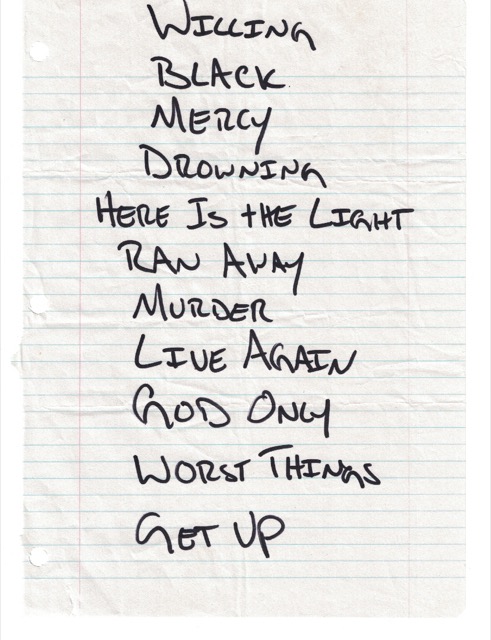 WILLING
BLACK
MERCY
DROWNING
HERE IS THE LIGHT
RAN AWAY
MURDER
LIVE AGAIN
GOD ONLY
WORST THINGS
GET UP